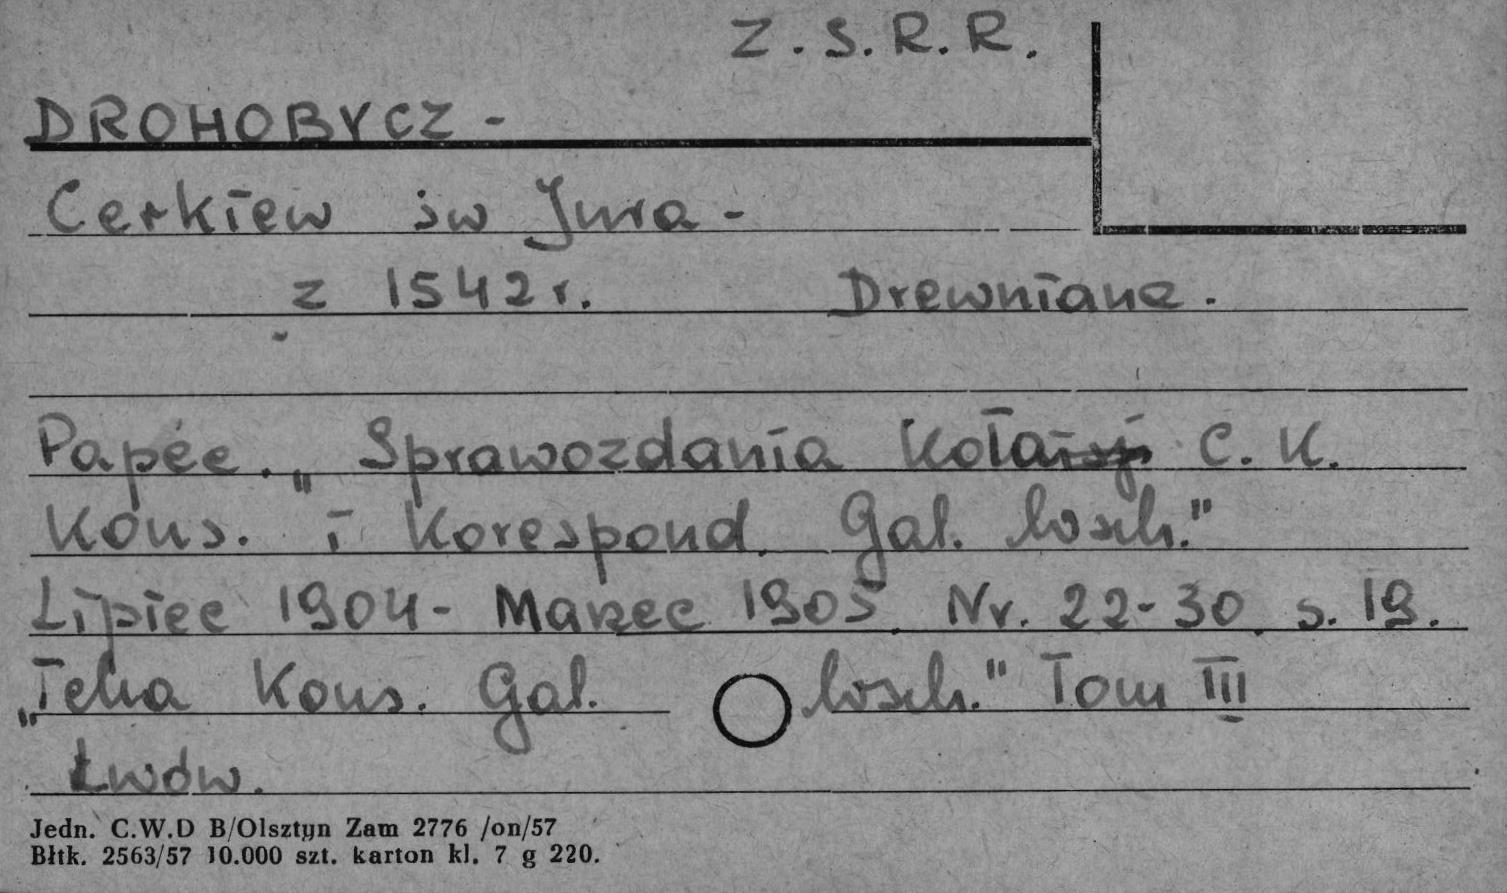 Z.S.R.R.
DROHOBYCZ -
Cerkiew św Jura -
z 1542 r. Drewniane.
Papée. „Sprawozdania C. K.
Kons. i Korespond. Gal. wsch."
Lipiec 1904 - Marzec 1905. Nr. 22-30. s. 19.
„Teka Kons. Gal. wsch." Tom III
Lwów.
Jedn. C.W.D B/Olsztyn Zam 2776 /on/57
Błtk. 2563/57 10.000 szt. karton kl. 7 g 220.